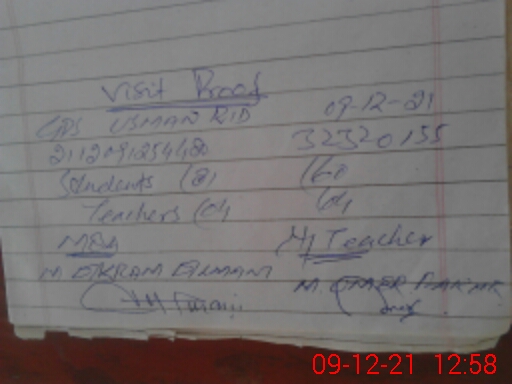 Visit Proof
GPS USMAN RID 09-12-21
2112091254420 32320155
Students (21 (60
Teachers (04 04
MEA H/Teacher
M. EIKRAM M. OMER
09-12-21 12:58